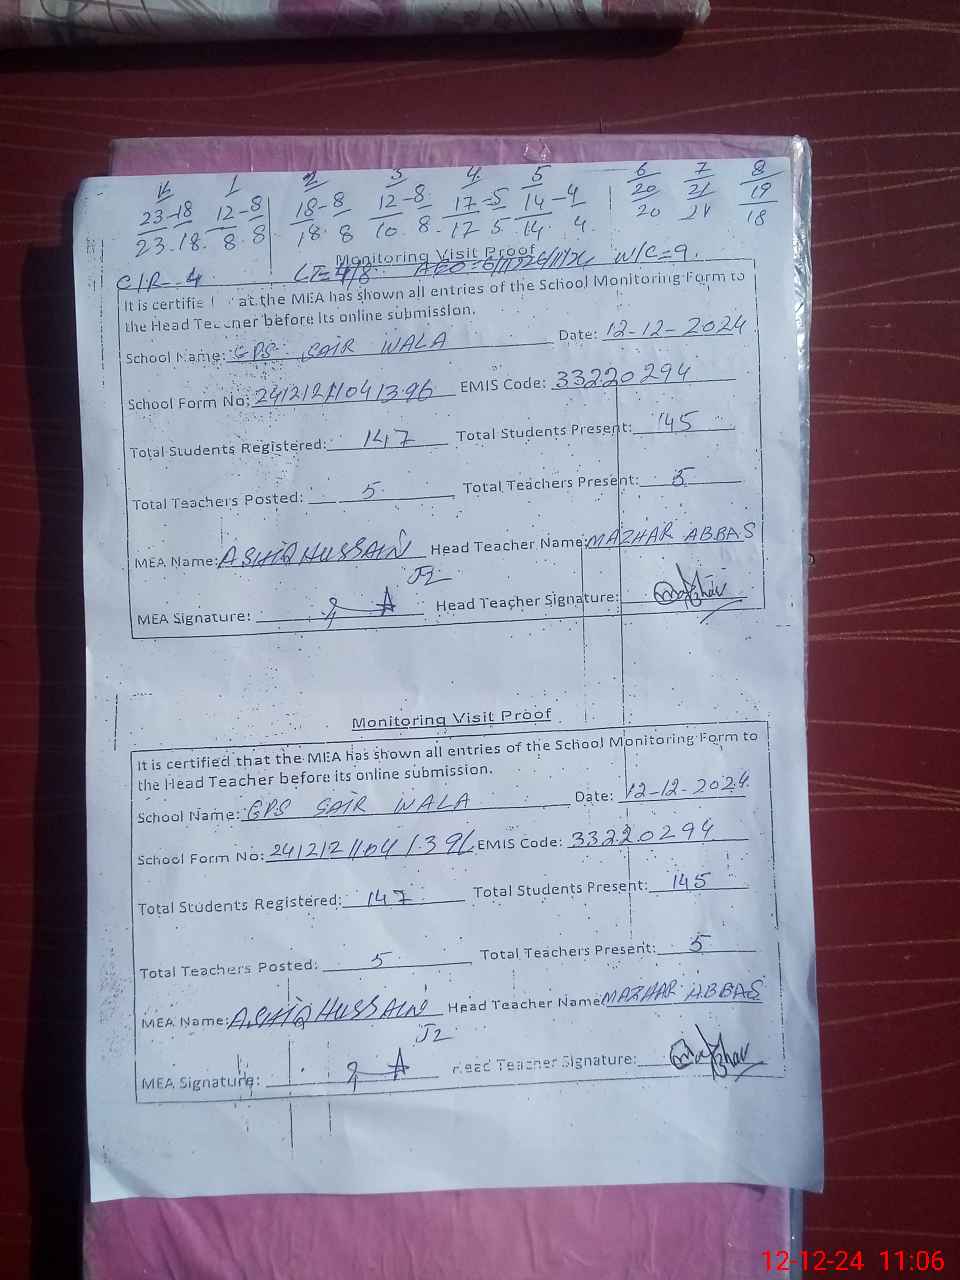 K 1 2 3 4 5 6 7 8
23-18 12-8 18-8 12-8 17-5 14-4 20 21 19
23-18. 8.8 18.8 10.8. 17 5. 14. 4. 20 21 18
Monitoring Visit Proof
C/R--4 W/C=9.
It is certifie at the MEA has shown all entries of the School Monitoring Form to
the Head Teacher before its online submission.
School Name: GPS SAIR WALA Date: 12-12-2024
School Form No: 24121211041396 EMIS Code: 33220294
Total Students Registered: 147 Total Students Present: 145
Total Teachers Posted: 5. Total Teachers Present: 5
MEA Name: ASHIQ HUSSAIN Head Teacher Name: MAZHAR ABBAS
J2
MEA Signature: Head Teacher Signature: Mazhar
Monitoring Visit Proof
It is certified that the MEA has shown all entries of the School Monitoring Form to
the Head Teacher before its online submission.
School Name: GPS SAIR WALA Date: 12-12-2024.
School Form No: 24121211041396 EMIS Code: 33220294
Total Students Registered: 147. Total Students Present: 145
Total Teachers Posted: 5. Total Teachers Present: 5
MEA Name: ASHIQ HUSSAIN Head Teacher Name MAZHAR ABBAS
J2
MEA Signature: Head Teacher Signature: Mazhar
12-12-24 11:06